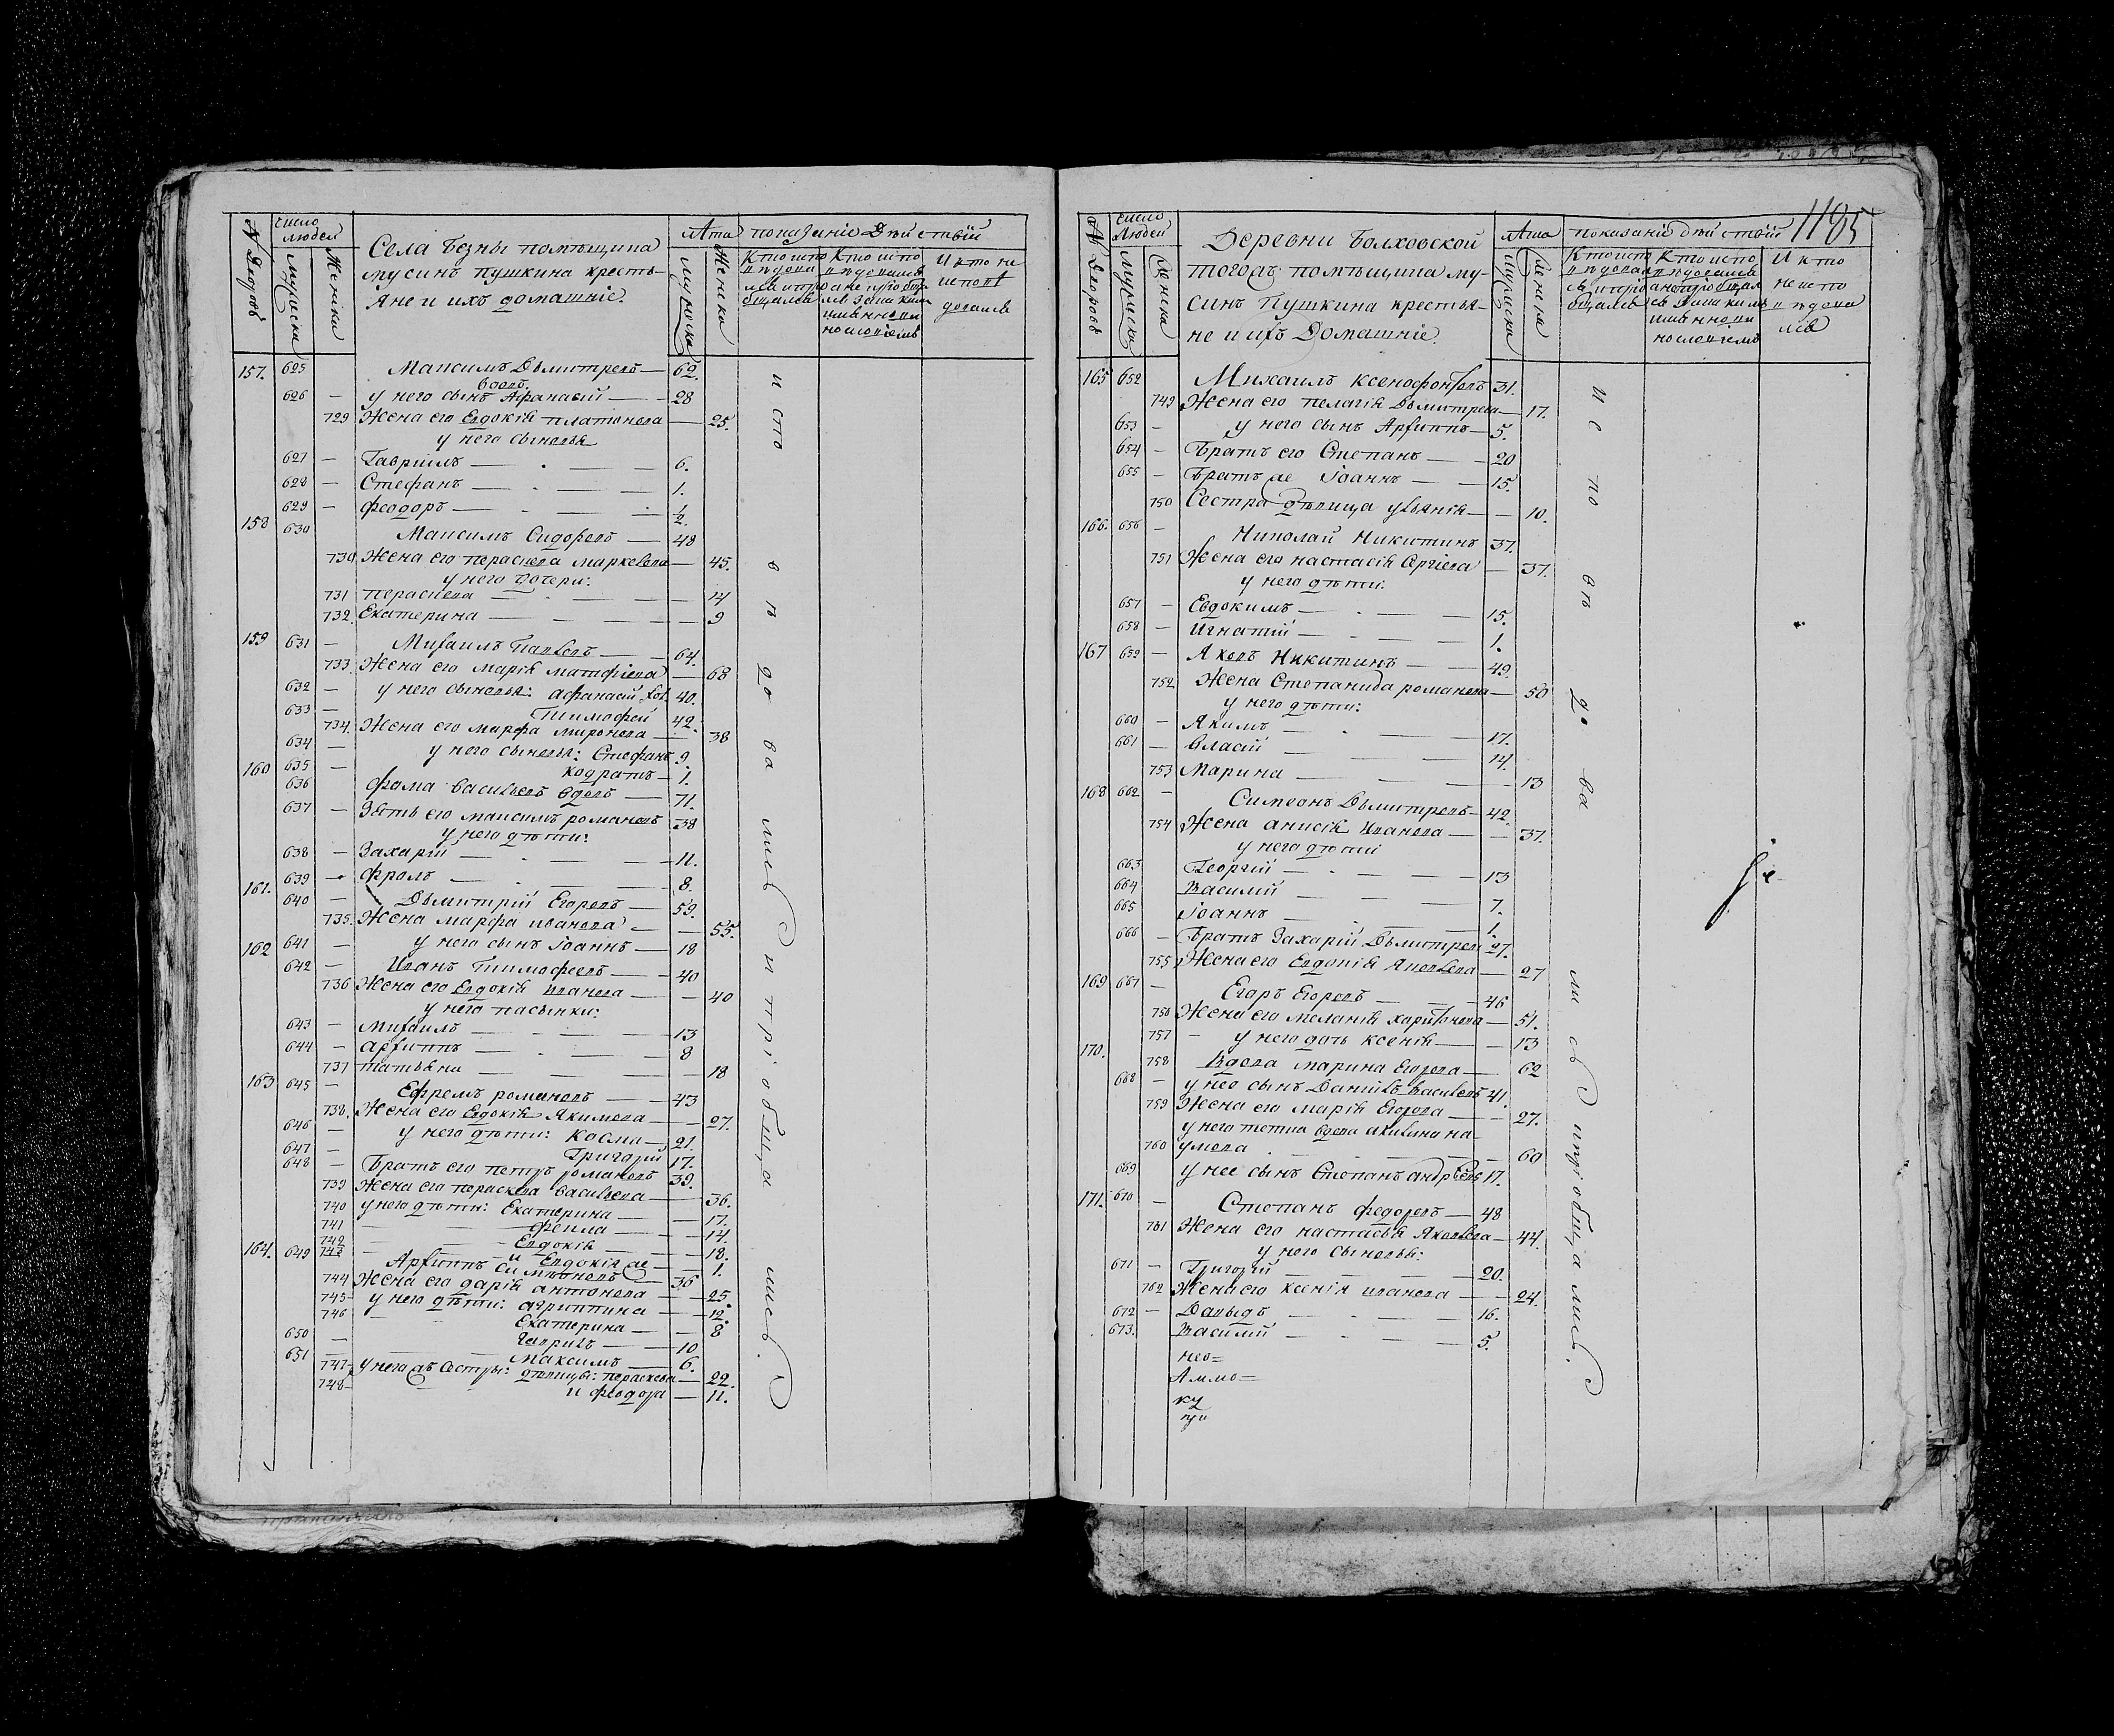 № Дворовъ
число людей
Мужеска
Женска
Села Безны помѣщика
мусинъ пушкина кресть-
яне и ихъ домашніе.
Лѣта
Мужеска
Женска
показаніе Дѣйствій
Кто испо
вѣдова
лся и прио
бщался
Кто испо
вѣдовался
а не приобща
лся
И кто не
исповѣ
довался
157. 625 Максимъ Дьмитревъ — 62.
вдовъ.
626 — у него сынъ Афанасій — 28
729 Жена его Евдокія платонова — 25.
у него сыновья
627 — Гавріилъ — 6.
628 — Стефанъ — 1.
629 — Феодоръ — 1/2.
158 630 Максимъ Сидоровъ — 48
730 Жена его параскева маркелова — 45.
у него дочери:
731 параскева — 14
732. Екатерина — 9
159 631 — Михаилъ Павловъ — 64.
733. Жена его марія матфіева — 68
632 — у него сыновья: афанасій 40.
633 — Тимофей 42.
734. Жена его марфа миронова — 38
634 — у него сыновья: Стефанъ 9.
635 — кодратъ — 1.
160 636 фома васильевъ вдовъ — 71.
637 — Зять его максимъ романовъ 38
у него дѣти:
638 — Захарій — 11.
639 — фролъ — 8.
161. 640 — Дьмитрій Егоровъ — 59.
735. Жена марфа иванова — 55.
641 — у него сынъ іоаннъ — 18
162 642 — Иванъ Тимофеевъ — 40
736 Жена его Евдокія иванова — 40
у него пасынки:
643 — Михаилъ — 13
644 — архиппъ — 8
737 татьяна — 18
163 645 — Ефремъ романовъ — 43
738. Жена его Евдокія Якимова — 27.
646 — у него дѣти: Косма — 21.
647 — Григорій 17.
648 — Братъ его петръ романовъ 39.
739 Жена его параскева васильева — 36.
740 у него дѣти: Екатерина — 17.
741 — фекла — 14.
742 — Евдокія — 18.
743 — и Евдокія же — 1.
164. 649 Архиппъ симѣоновъ — 36
744 Жена его дарія антонова — 25.
745 у него дѣти: агриппина — 12.
746 — Екатерина — 8
650 — Гавріилъ — 10
651 — Максимъ — 6.
747 у него жъ сестры: дѣвицы: параскева — 22.
748 — и феодора — 11.
исповѣдовались и пріобщались.
1185
№ Дворовъ
число Людей
Мужеска
Женска
Деревни Болховской
тогожъ помѣщика му-
синъ Пушкина крестья-
не и ихъ Домашніе.
Лѣта
Мужеска
Женска
показаніе дѣйствій
Кто испо
вѣдовал
ся и прио
бщался
Кто испо
вѣдовался
а не приобщал
ся
И кто
не испо
вѣдова
лся
165 652 Михаилъ ксенофонтовъ 31.
749 Жена его пелагія Дьмитрева — 17.
653 — у него сынъ Архиппъ — 5.
654 — Братъ его Степанъ — 20
655 — Братъ же Іоаннъ — 15.
750 Сестра дѣвица ульянія — 10.
166. 656 — Николай Никитинъ 37.
751 Жена его настасія Сергіева — 37.
у него дѣти:
657 — Евдокимъ — 15.
658 — Игнатій — 1.
167 659 — Яковъ Никитинъ — 49.
752 Жена Степанида романова — 50
у него дѣти:
660 — Якимъ — 17.
661 — Власій — 14.
753 Марина — 13
168 662 — Симеонъ Дьмитревъ — 42.
754 Жена анисія Иванова — 37.
у него дѣти
663 Георгій — 13
664 Василій — 7.
665 Іоаннъ — 1.
666 — Братъ Захарій Дьмитрев 27.
755 Жена его Евдокія Яковлева — 27
169 667 — Егоръ Егоровъ — 46
756 Жена его меланія харитонова — 51.
757 — у него дочь ксенія — 13
170. 758 Вдова Марина Егорова — 62
668 — у нее сынъ Даніилъ васильевъ 41.
759 Жена его марія Егорова — 27.
у него тетка вдова акилина на-
760 умова — 60
669 у нее сынъ Степанъ андреевъ 17.
171. 670 — Степанъ федоровъ — 48
761 Жена его настасья Яковлева — 44.
у него сыновья:
671 — Григорій — 20.
762 Жена его ксенія иванова — 24.
672 — Давыдъ — 16.
673. Василій — 5.
исповѣдовались и пріобщались.